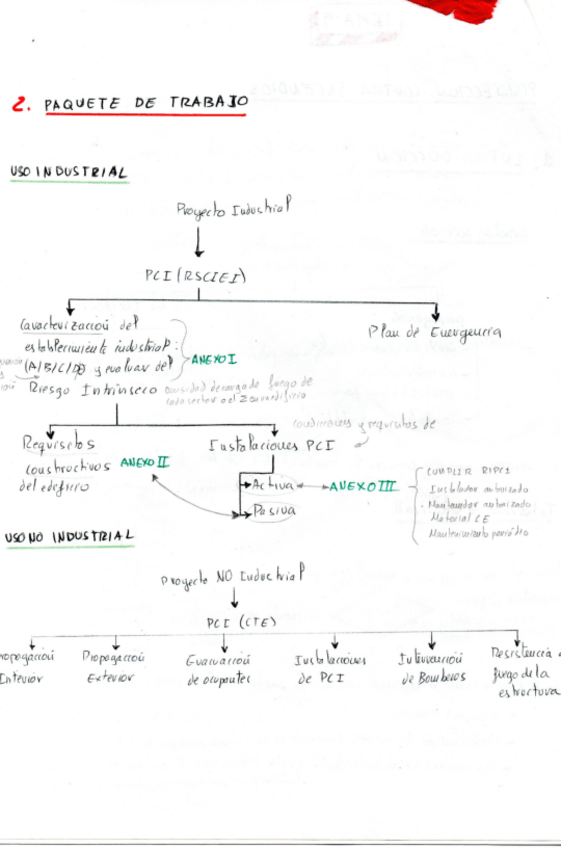 2. PAQUETE DE TRABAJO
USO INDUSTRIAL
Proyecto Industrial
PCI (RSCIEI)
Caracterización del
establecimiento industrial:
(A/B/C/D/E) y evaluar del
Riesgo Intrínseco
ANEXO I
densidad de carga de fuego de
cada sector o el edificio
Plan de Emergencia
condiciones y requisitos de
Requisitos
constructivos
del edificio
ANEXO II
Instalaciones PCI
Activa
Pasiva
ANEXO III
CUMPLIR RIPCI
Instalador autorizado
Mantenedor autorizado
Material CE
Mantenimiento periódico
USO NO INDUSTRIAL
Proyecto NO Industrial
PCI (CTE)
Propagación
Interior
Propagación
Exterior
Evacuación
de ocupantes
Instalaciones
de PCI
Intervención
de Bomberos
Resistencia a
fuego de la
estructura